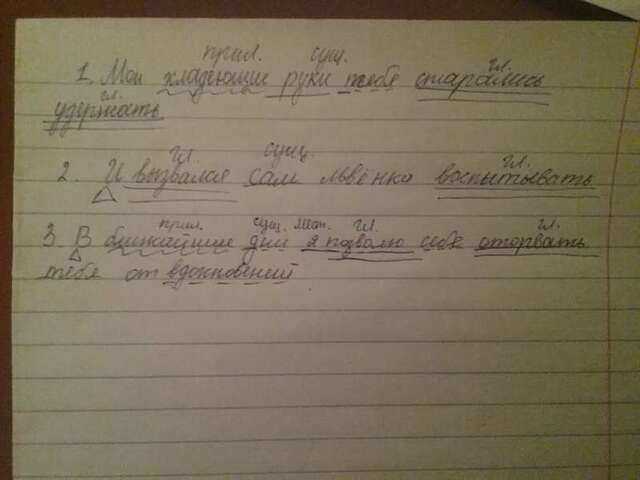 прил. сущ. гл.
1. Мои хладеющие руки тебя старались
гл.
удержать
гл. сущ. гл.
2. И вызвался сам львёнка воспитывать
прил. сущ. мест. гл. гл.
3. В ближайшие дни я позволю себе оторвать
тебя от вдохновений